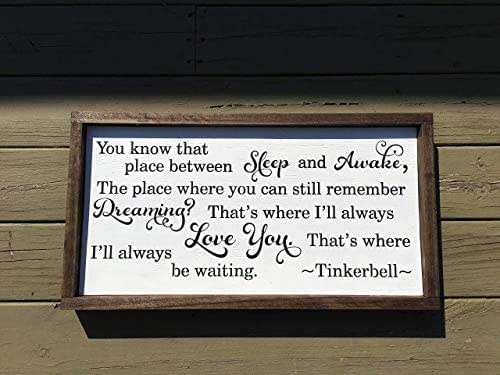 You know that
place between Sleep and Awake,
The place where you can still remember
Dreaming? That's where I'll always
Love You. That's where
I'll always
be waiting. ~Tinkerbell~